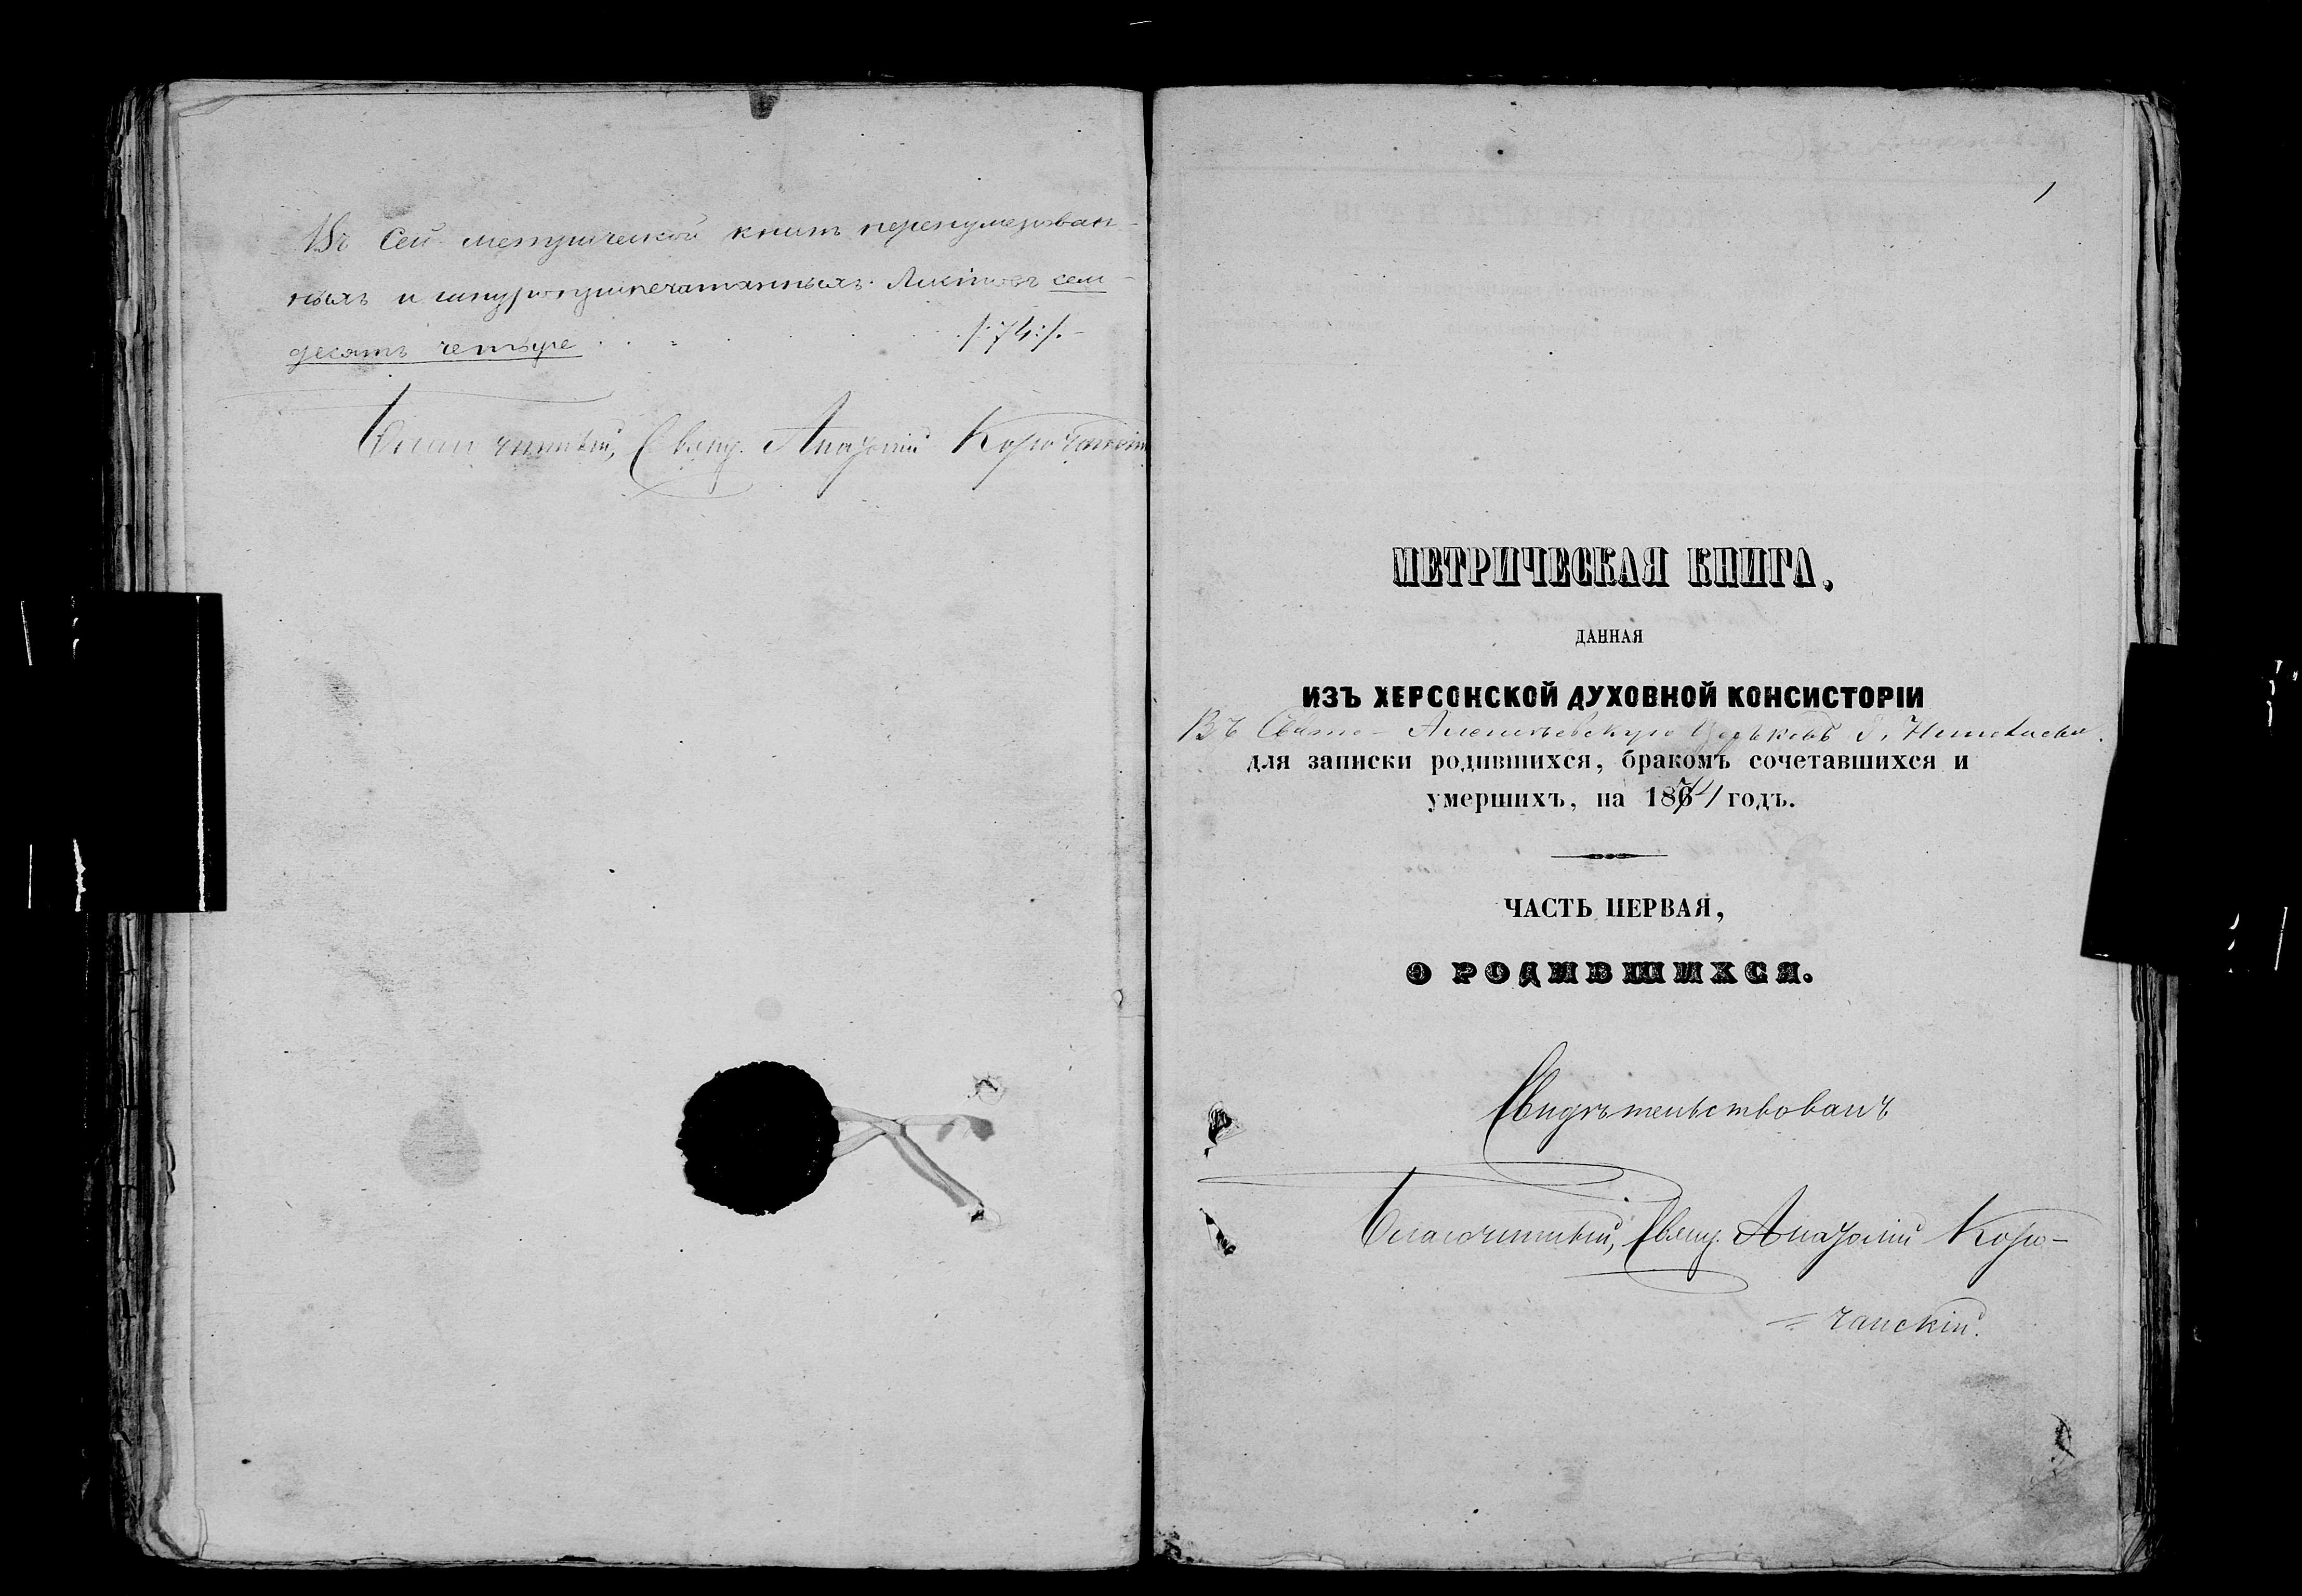 Въ сей метрической книгѣ перенумерован-
ныхъ и шнуроприпечатанныхъ листовъ сем-
десятъ четыре . . . . . /:74:/.
Благочинный, Свящ. Анатолій Корочанскій
1
МЕТРИЧЕСКАЯ КНИГА,
ДАННАЯ
ИЗЪ ХЕРСОНСКОЙ ДУХОВНОЙ КОНСИСТОРІИ
Въ Свято- Церковь г. Николаева.
для записки родившихся, бракомъ сочетавшихся и
умершихъ, на 1874 годъ.
ЧАСТЬ ПЕРВАЯ,
О РОДИВШИХСЯ.
Свидѣтельствовалъ
Благочинный, Свящ. Анатолій Коро-
чанскій.